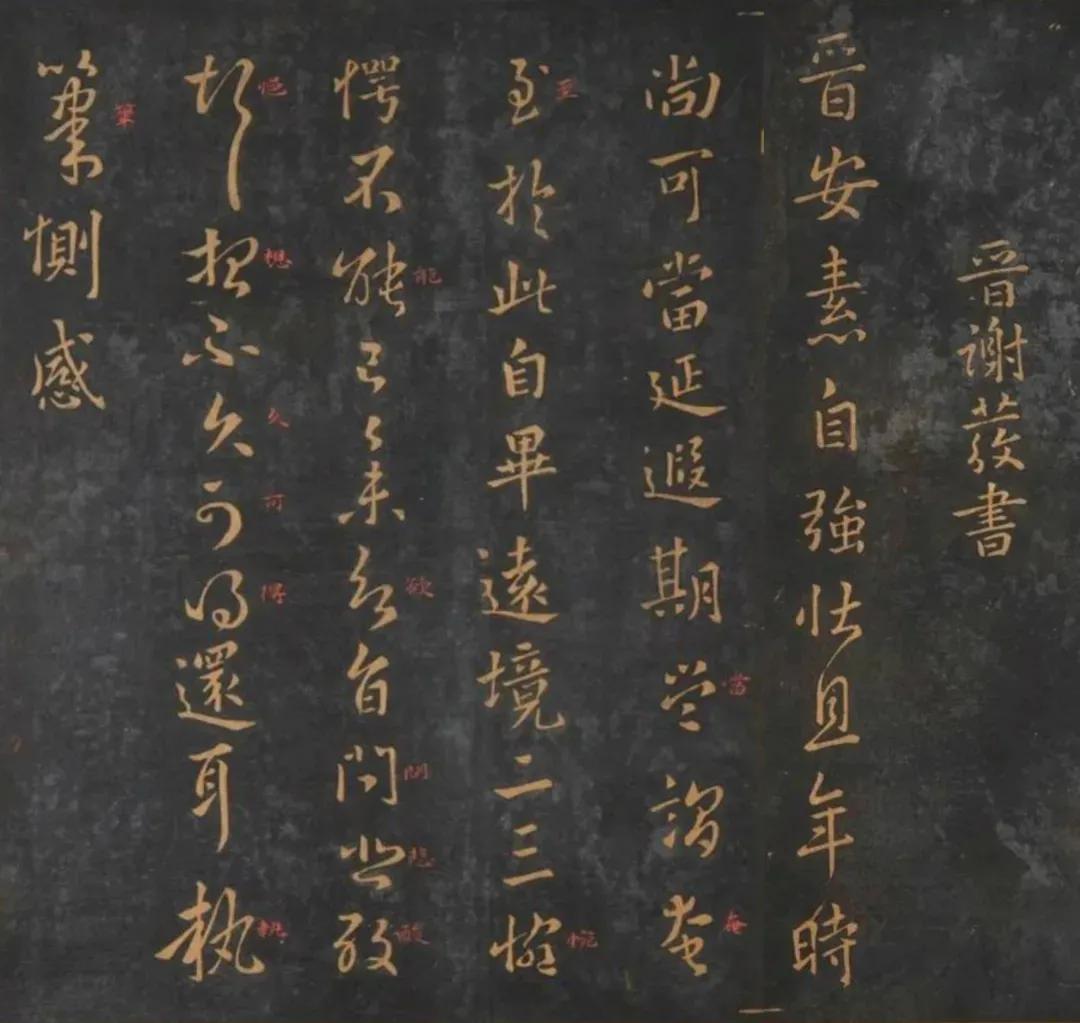 晉謝發書
晉安素自強壯且年時
尚可當延遐期當謂奄
當
奄
至於此自畢遠境二三惋
至
惋
愕不能已已未欲自問悲酸
能
欲
問
悲
酸
想不久可得還耳執
想
久
可
得
執
筆惻感
筆